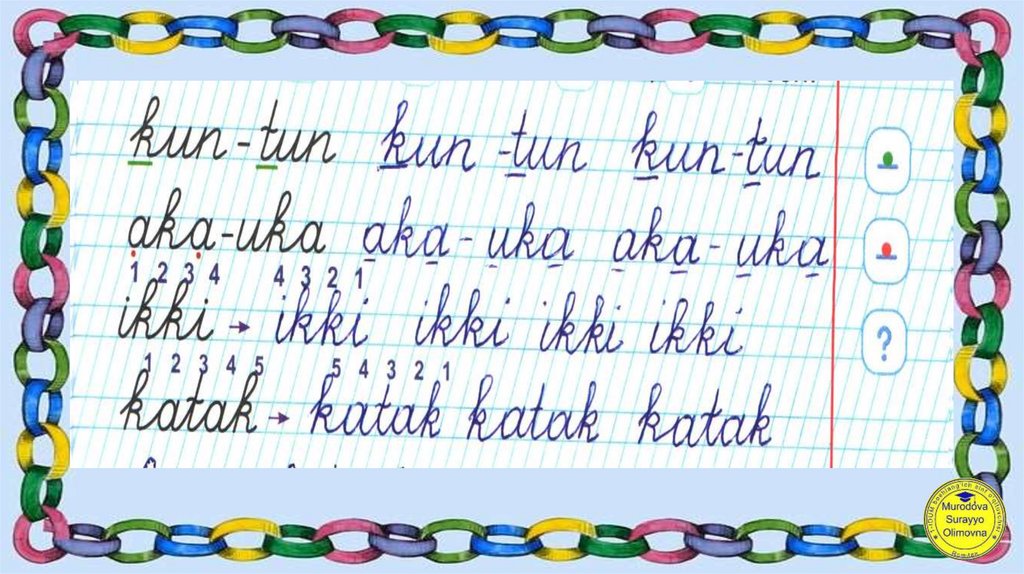 kun-tun kun-tun kun-tun
aka-uka aka-uka aka-uka
1 2 3 4 4 3 2 1
ikki → ikki ikki ikki ikki
?
1 2 3 4 5 5 4 3 2 1
katak → katak katak katak
Murodova
Surayyo
Olimovna